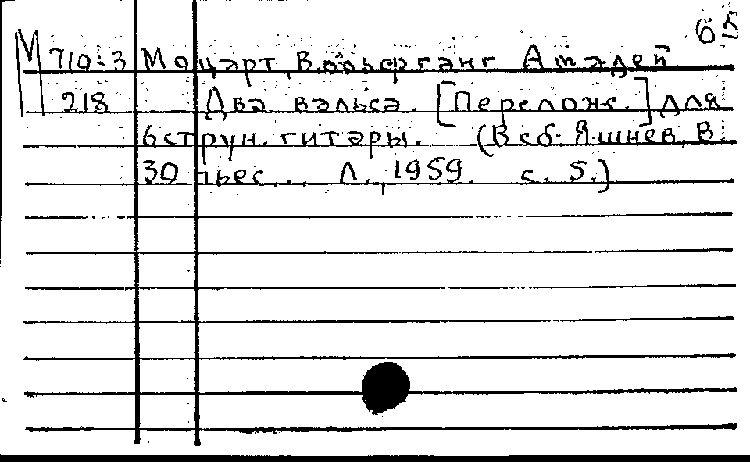 65
М 710-3 Моцарт, Вольфганг Амадей
218 Два вальса. [Перелож.] для
6 струн. гитары. (В сб: Яшнев, В.
30 пьес... Л., 1959. с. 5.)